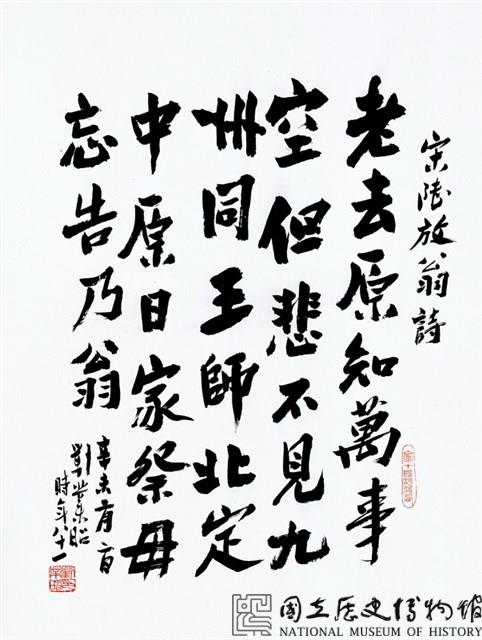 宋陸放翁詩
老去原知萬事
空但悲不見九
州同王師北定
中原日家祭毋
忘告乃翁
辛未有
劉業昭
時年八十一
國立歷史博物館
NATIONAL MUSEUM OF HISTORY